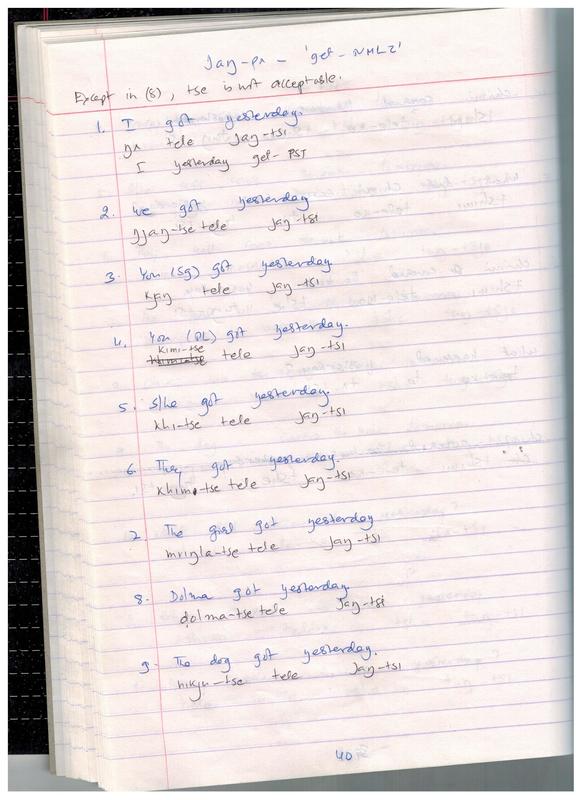 Jaŋ-pʌ - 'get - NMLZ'
Except in (8), tse is not acceptable.
1. I got yesterday.
ŋʌ tele Jaŋ-tsɪ
I yesterday get-PST
2. We got yesterday
ŋJaŋ-tse tele Jaŋ-tsɪ
3. You (Sg) got yesterday
tele Jaŋ-tsɪ
4. You (PL) got yesterday.
Kimi-tse tele Jaŋ-tsɪ
5. S/he got yesterday.
khi-tse tele Jaŋ-tsɪ
6. They got yesterday.
khimi-tse tele Jaŋ-tsɪ
7. The girl got yesterday
tele Jaŋ-tsɪ
8. Dolma got yesterday
dolma-tse tele Jaŋ-tsɪ
9. The dog got yesterday.
tele Jaŋ-tsɪ
40